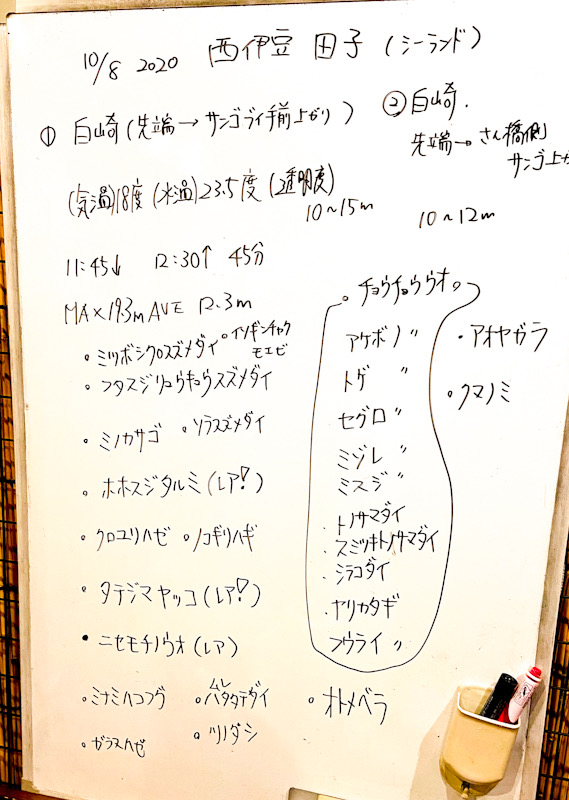 10/8 2020 西伊豆 田子 (シーランド)
① 白崎(先端→サンゴライ手前上がり)
② 白崎.
先端→さん橋側
サンゴ上が
(気温)18度 (水温)23.5度 (透明度)
10~15m
10~12m
11:45↓ 12:30↑ 45分
MAX 19.3m AVE 12.3m
・ミツボシクロスズメダイ ・イソギンチャク
モエビ
・フタスジリュウキュウスズメダイ
・ミノカサゴ ・ソラスズメダイ
・ホホスジタルミ(レア!)
・クロユリハゼ ・ノコギリハギ
・タテジマヤッコ(レア!)
・ニセモチノウオ(レア)
・ミナミハコフグ ・ムレハタタテダイ ・オトメベラ
・ガラスハゼ ・ツノダシ
・チョウチョウウオ。
アケボノ 〃
トゲ 〃
セグロ 〃
ミゾレ 〃
ミスジ 〃
・トノサマダイ
・スミツキトノサマダイ
・シラコダイ
・ヤリカタギ
フウライ 〃
・アオヤガラ
・クマノミ